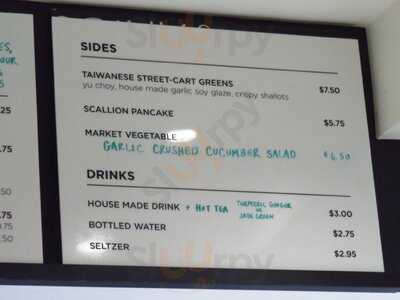 ES,
OUR
S
SIDES
TAIWANESE STREET-CART GREENS $7.50
yu choy, house made garlic soy glaze, crispy shallots
.25
SCALLION PANCAKE $5.75
.75
MARKET VEGETABLE
GARLIC CRUSHED CUCUMBER SALAD $6.50
DRINKS
.50
HOUSE MADE DRINK + HOT TEA TURMERIC GINGER OR JADE GREEN $3.00
.75
BOTTLED WATER $2.75
.50
.75
SELTZER $2.95
.50
Sluurpy